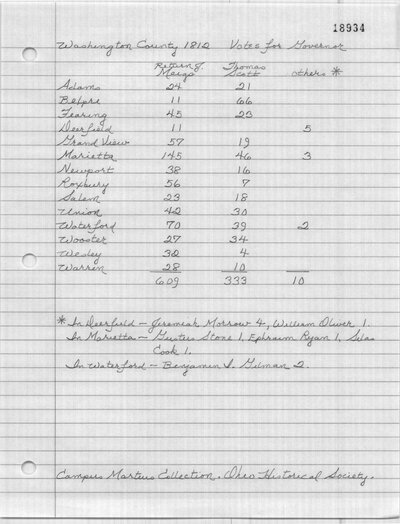 18934
Washington County 1812 Votes for Governor
Return J. Meigs Thomas Scott others *
Adams 24 21
Belpre 11 66
Fearing 45 23
Deerfield 11 5
Grand View 57 19
Marietta 145 46 3
Newport 38 16
Roxbury 56 7
Salem 23 18
Union 42 30
Waterford 70 39 2
Wooster 27 34
Wesley 32 4
Warren 28 10
609 333 10
* In Deerfield - Jeremiah Morrow 4, William Oliver 1.
In Marietta - Stone 1, Ephraim Ryan 1, Silas
Cook 1.
In Waterford - Benjamin I. Gilman 2.
Campus Martius Collection. Ohio Historical Society.